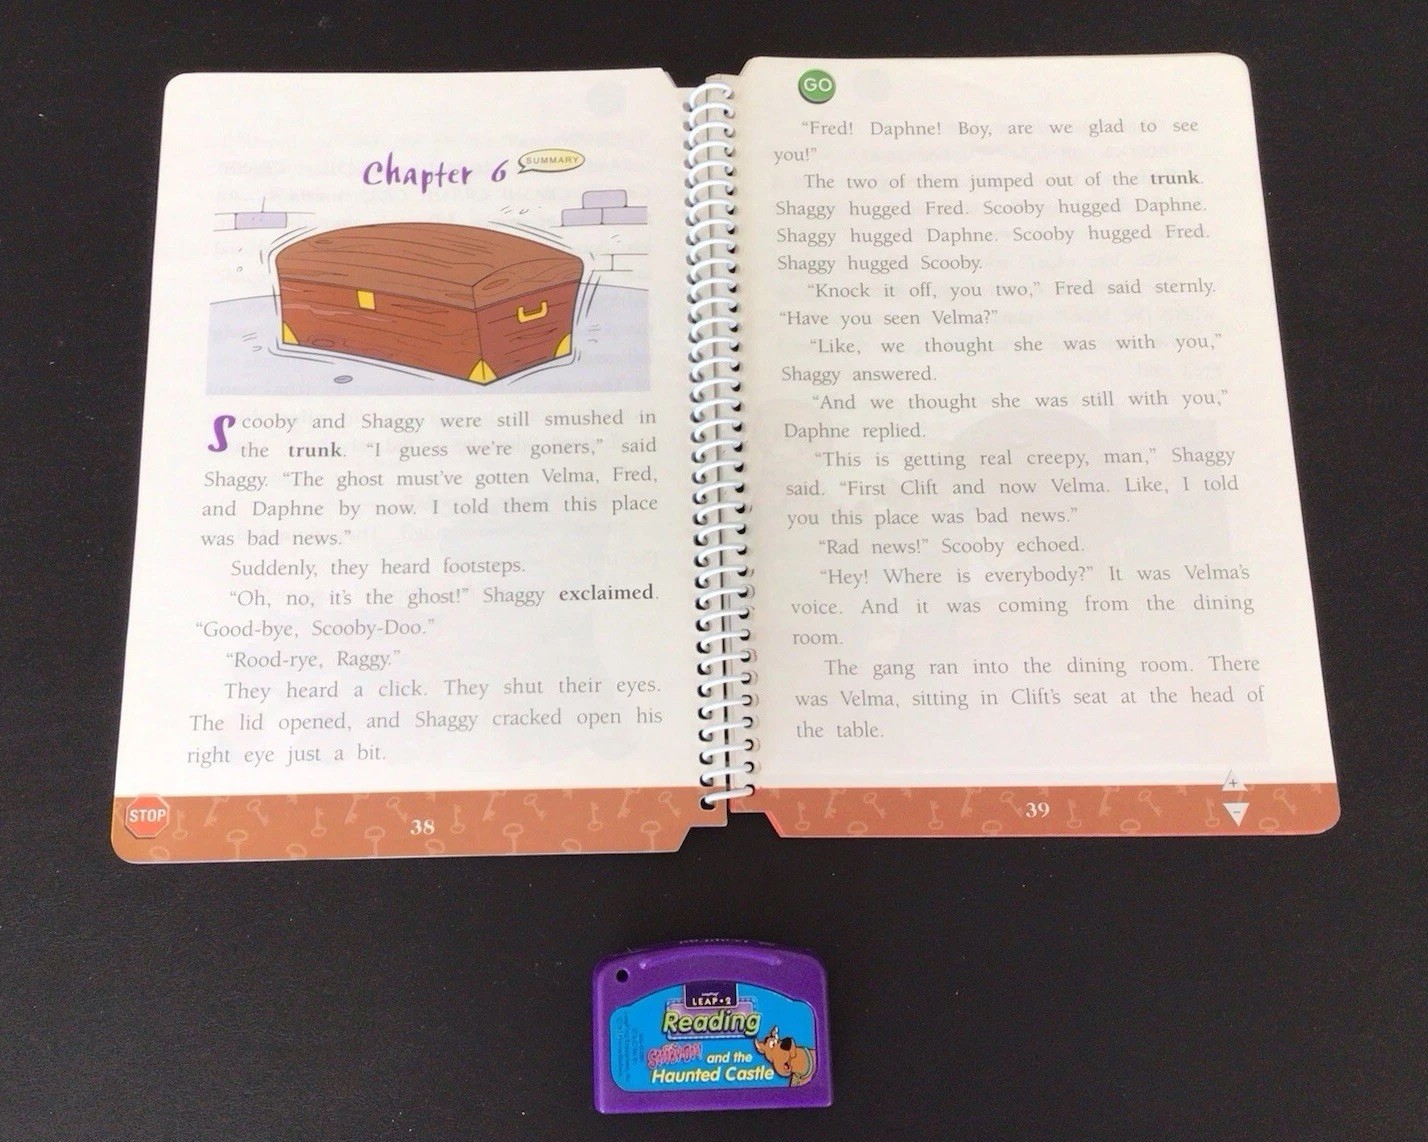 Chapter 6
SUMMARY
Scooby and Shaggy were still smushed in
the trunk. “I guess we’re goners,” said
Shaggy. “The ghost must’ve gotten Velma, Fred,
and Daphne by now. I told them this place
was bad news.”
Suddenly, they heard footsteps.
“Oh, no, it’s the ghost!” Shaggy exclaimed.
“Good-bye, Scooby-Doo.”
“Rood-rye, Raggy.”
They heard a click. They shut their eyes.
The lid opened, and Shaggy cracked open his
right eye just a bit.
STOP
38
GO
“Fred! Daphne! Boy, are we glad to see
you!”
The two of them jumped out of the trunk.
Shaggy hugged Fred. Scooby hugged Daphne.
Shaggy hugged Daphne. Scooby hugged Fred.
Shaggy hugged Scooby.
“Knock it off, you two,” Fred said sternly.
“Have you seen Velma?”
“Like, we thought she was with you,”
Shaggy answered.
“And we thought she was still with you,”
Daphne replied.
“This is getting real creepy, man,” Shaggy
said. “First Clift and now Velma. Like, I told
you this place was bad news.”
“Rad news!” Scooby echoed.
“Hey! Where is everybody?” It was Velma’s
voice. And it was coming from the dining
room.
The gang ran into the dining room. There
was Velma, sitting in Clift’s seat at the head of
the table.
39
+
-
LEAP•2
Reading
SCOOBY-DOO!
and the
Haunted Castle